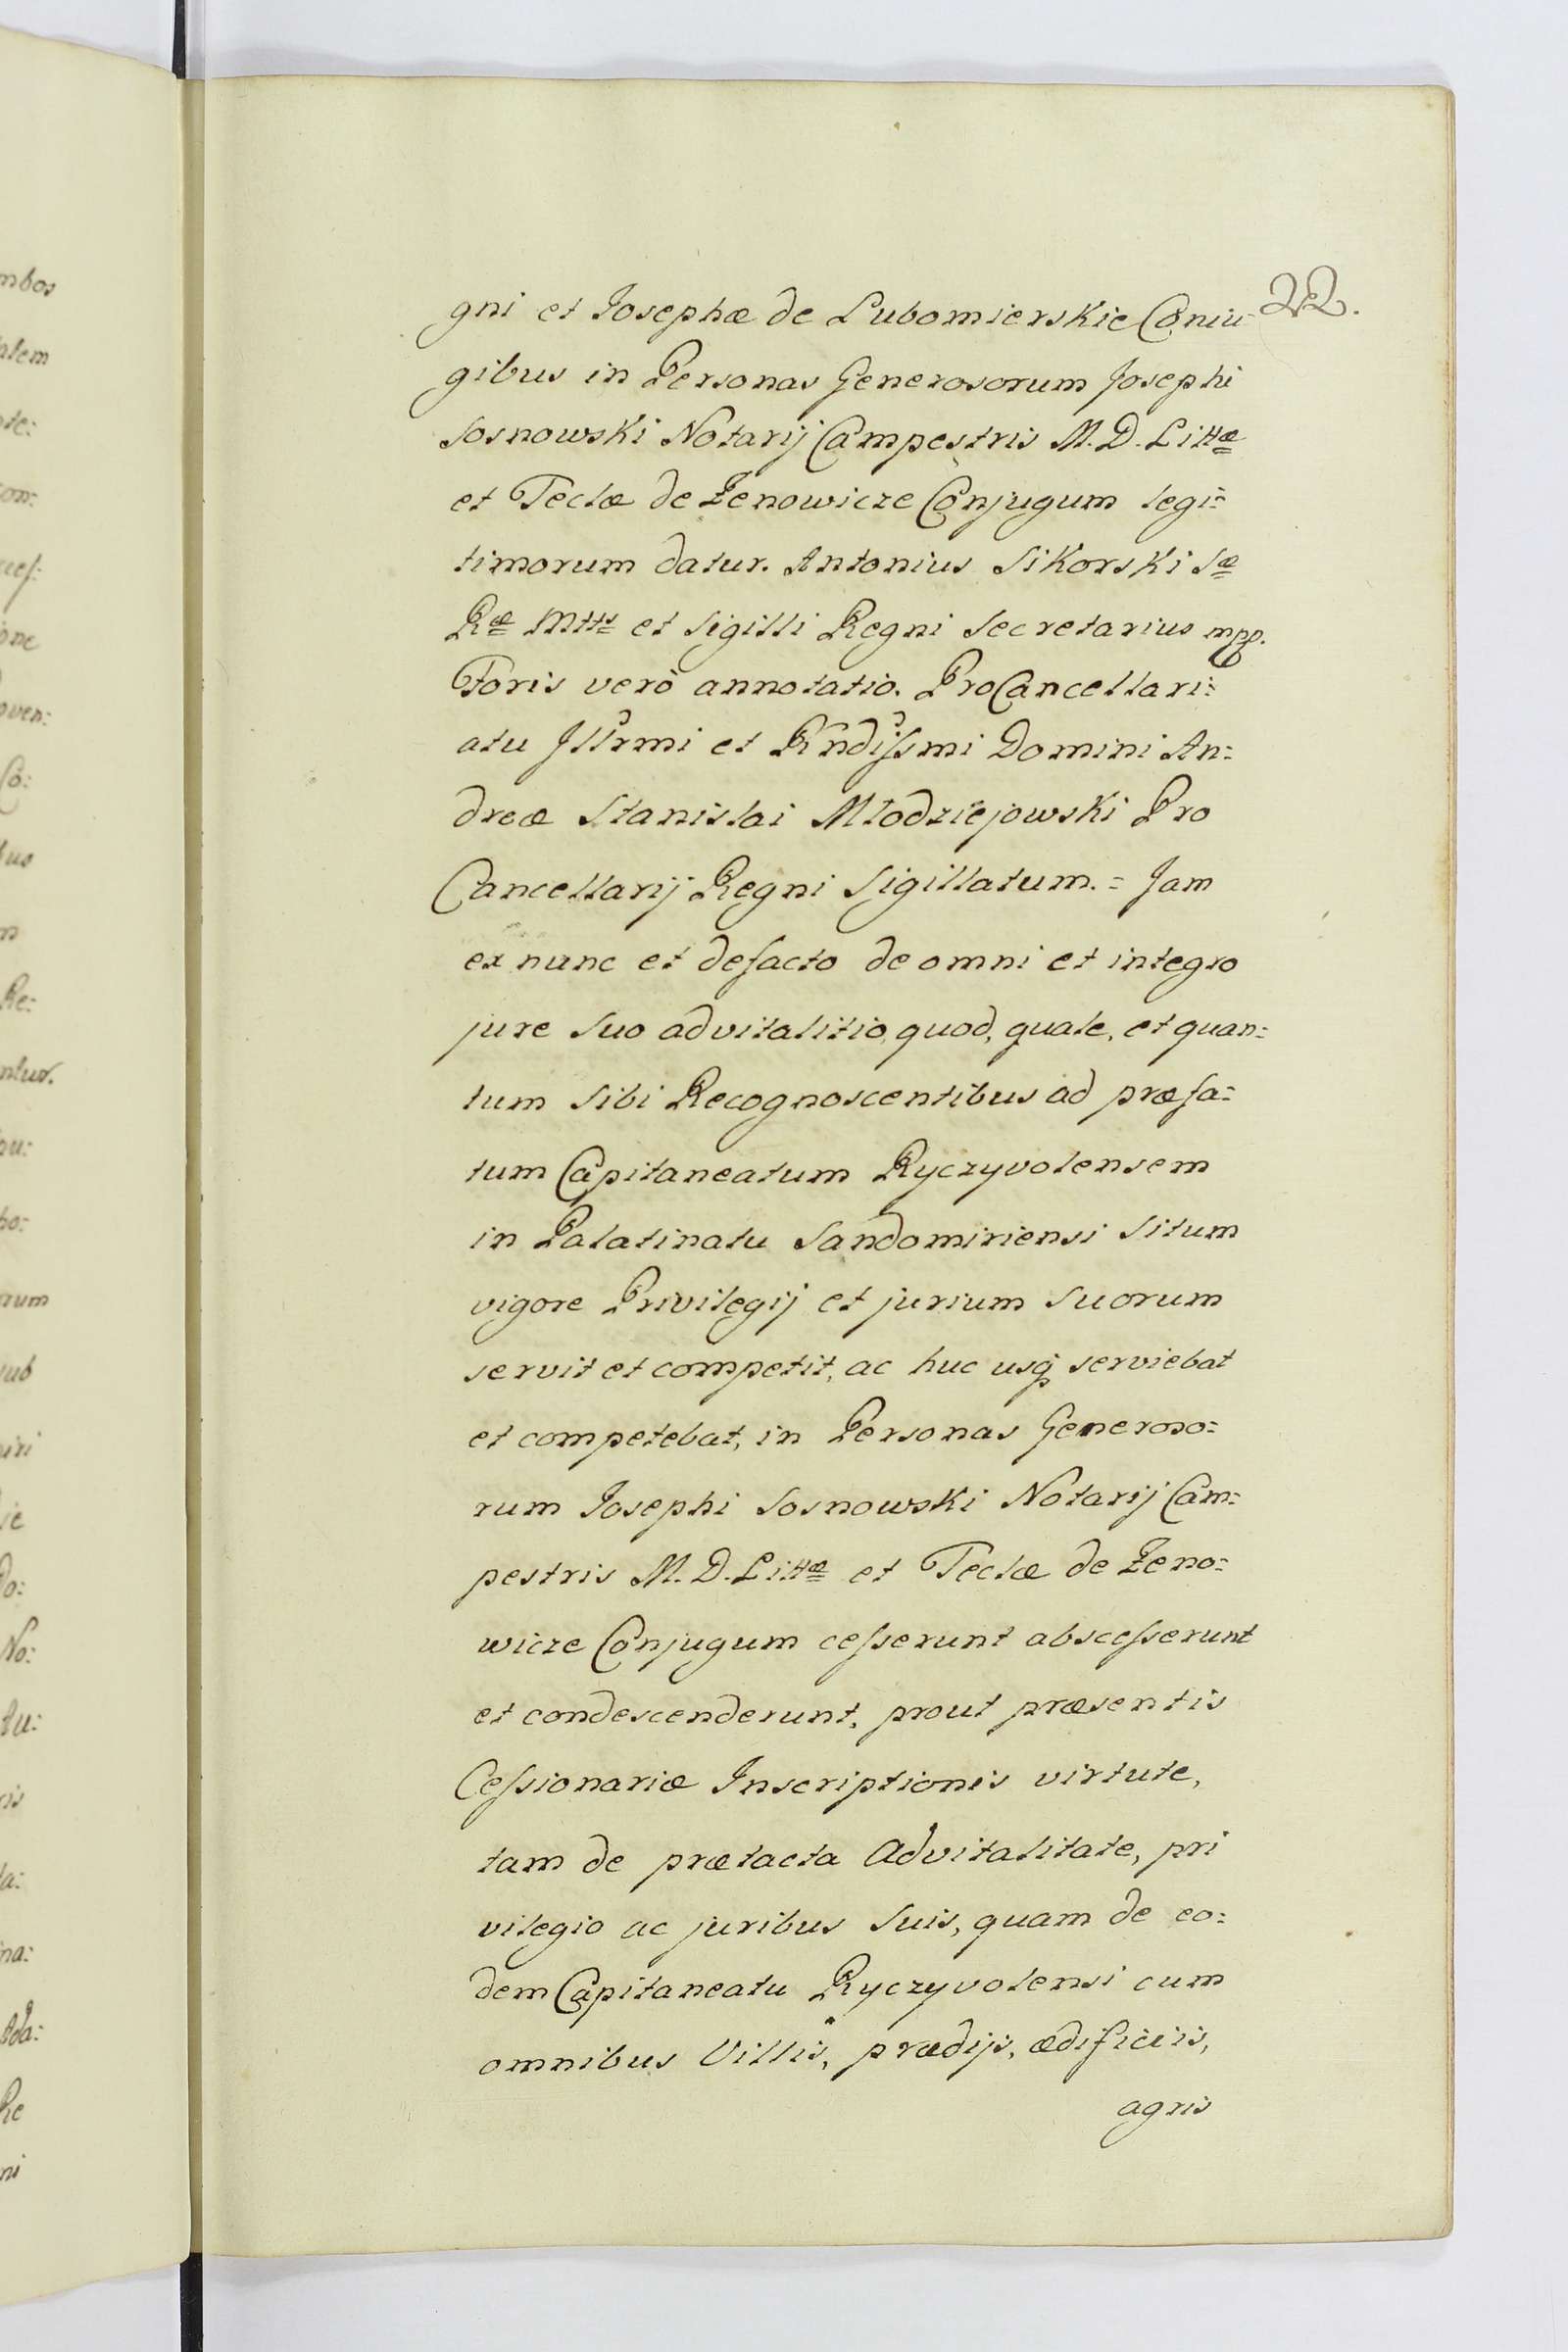 22.
gni et Josephæ de Lubomierskie Coniu-
gibus in Personas Generosorum Josephi
Sosnowski Notarij Campestris M. D. Littæ
et Teclæ de Zenowicze Conjugum legi=
timorum datur. Antonius Sikorski Sæ
Ræ Mttis et Sigilli Regni Secretarius mpp.
Foris verò annotatio. ProCancellari=
atu Illrmi et Rndissmi Domini An=
dreæ Stanislai Młodziejowski Pro
Cancellarij Regni Sigillatum. = Jam
ex nunc et defacto de omni et integro
jure Suo advitalitio, quod, quale, et quan=
tum Sibi Recognoscentibus ad præfa=
tum Capitaneatum Ryczyvolensem
in Palatinatu Sandomiriensi Situm
vigore Privilegij et jurium Suorum
servit et competit, ac huc usq serviebat
et competebat, in Personas Generoso=
rum Josephi Sosnowski Notarij Cam=
pestris M. D. Littæ et Teclæ de Zeno=
wicze Conjugum cesserunt abscesserunt
et condescenderunt, prout præsentis
Cessionariæ Inscriptionis virtute,
tam de prætacta Advitalitate, pri
vilegio ac juribus Suis, quam de eo=
dem Capitaneatu Ryczyvolensi cum
omnibus Villis, prædijs, ædificiis,
agris